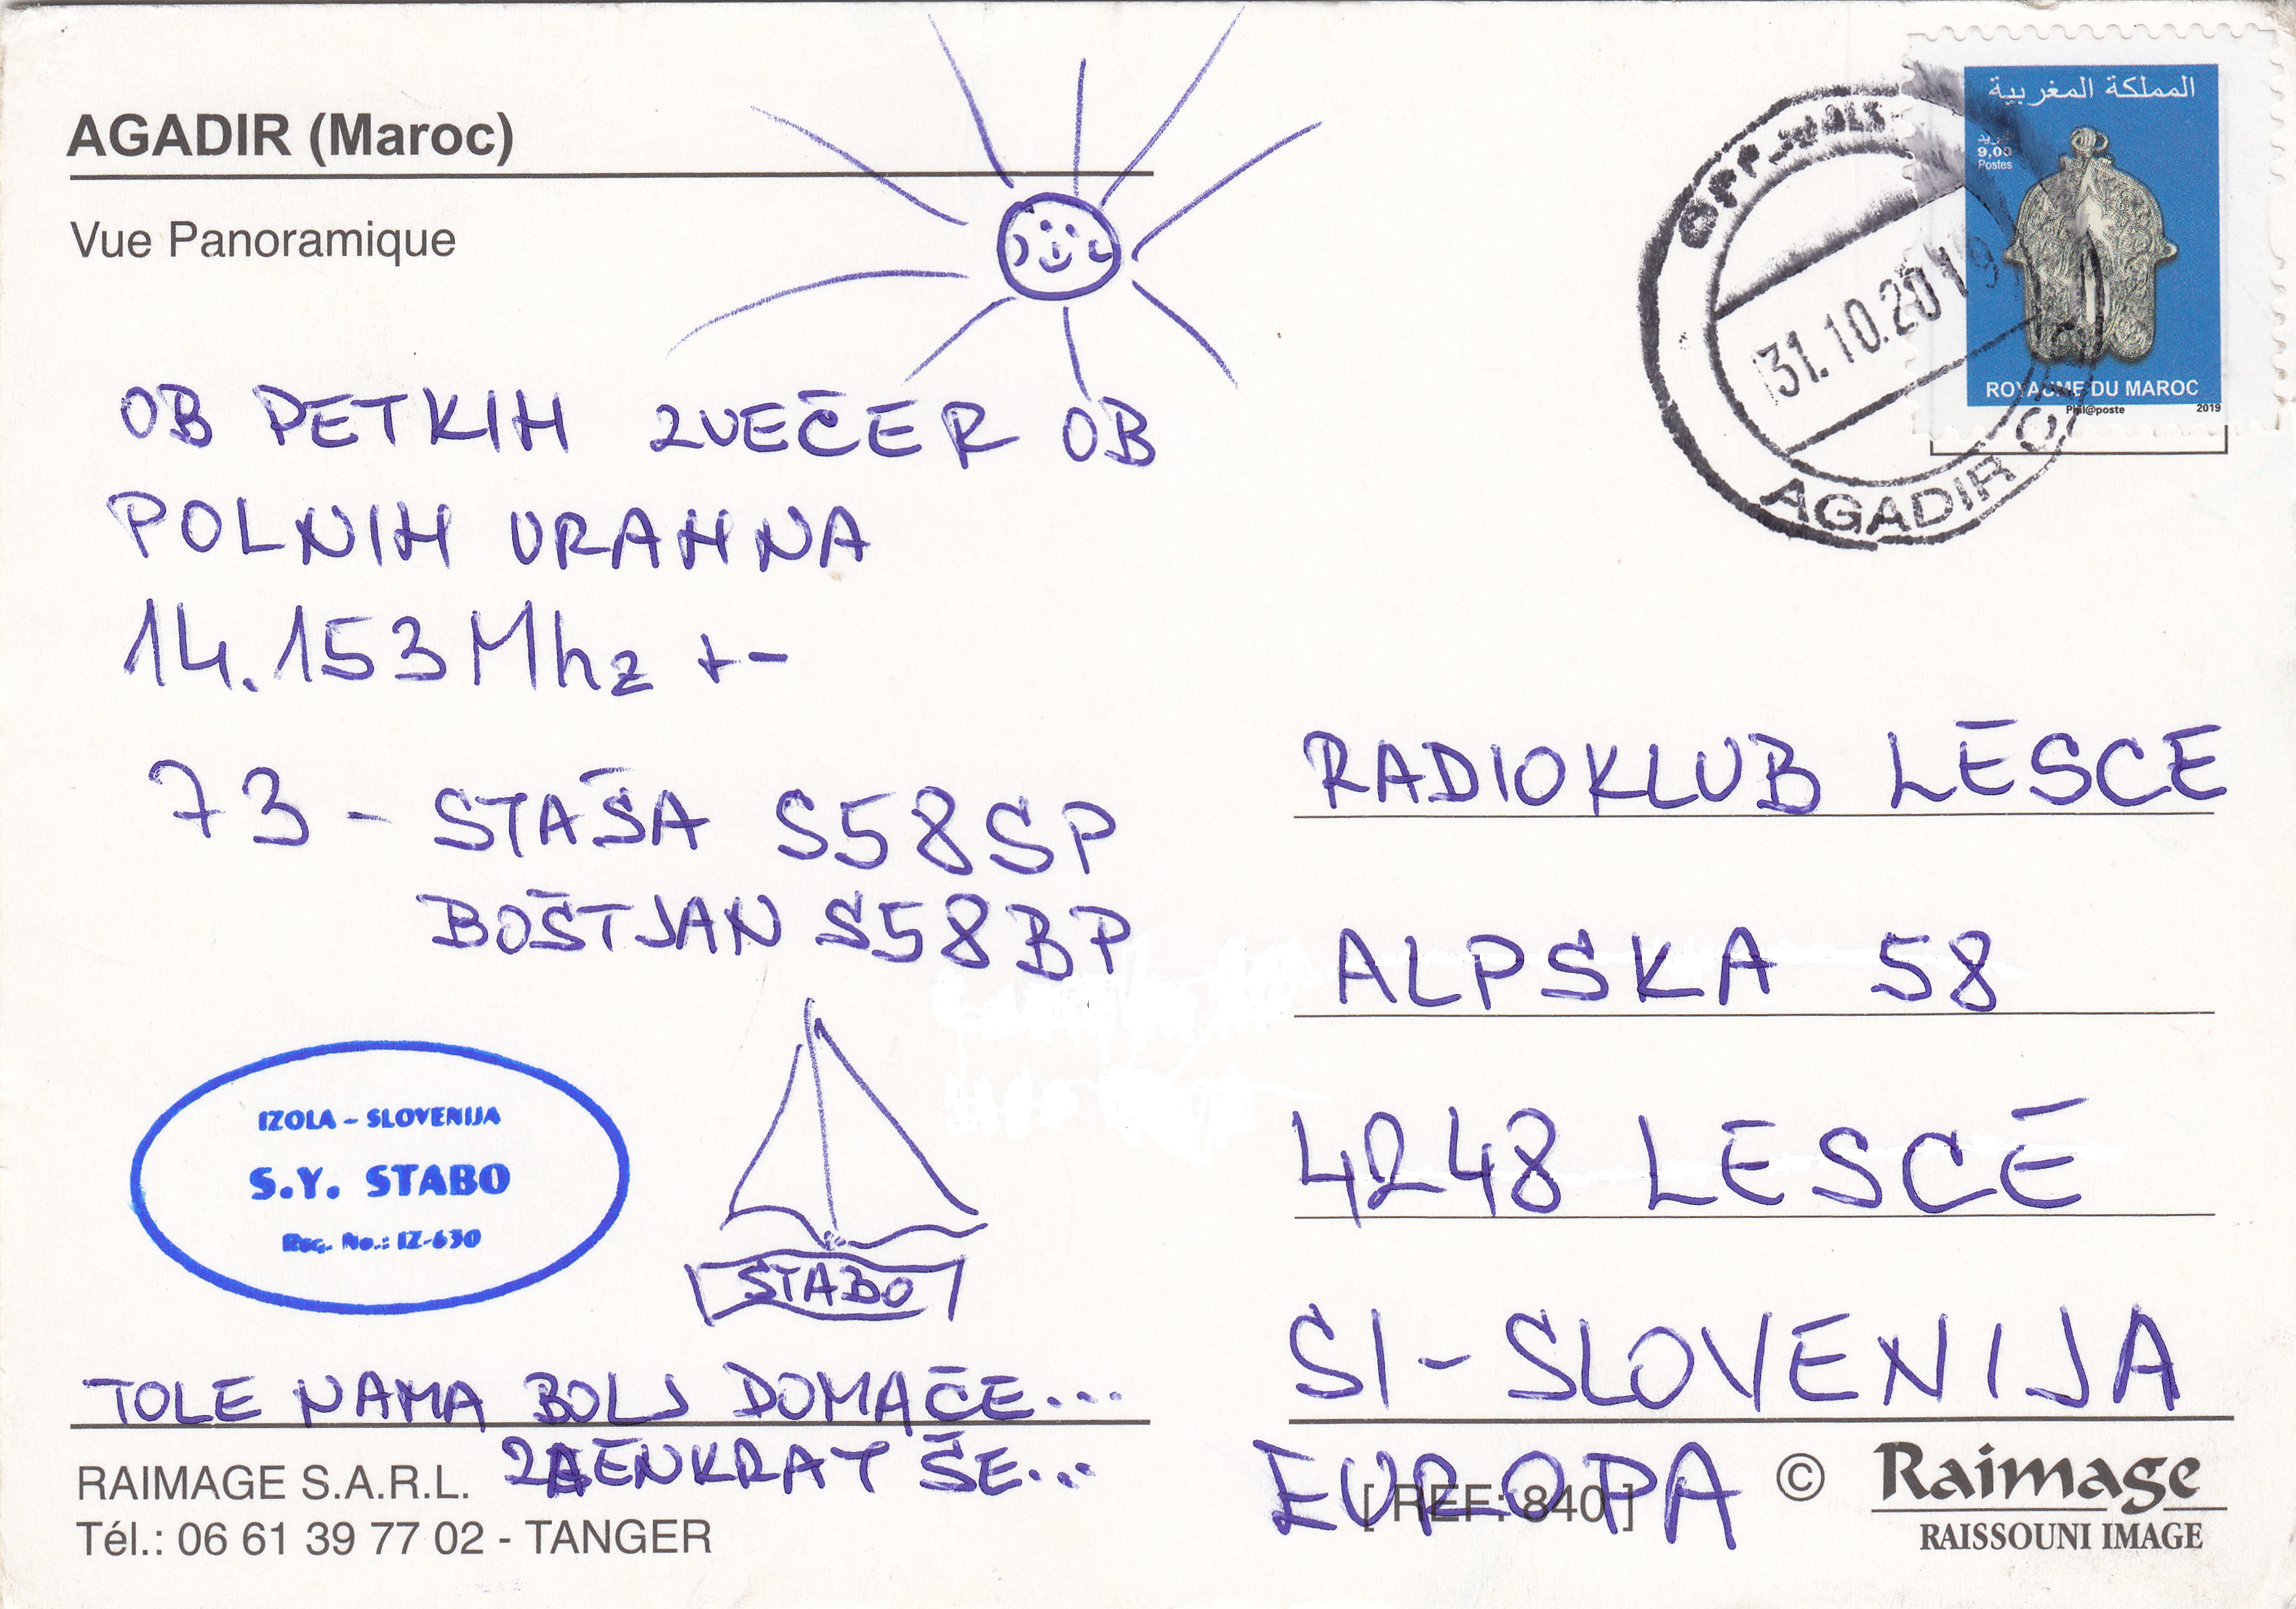 AGADIR (Maroc)
Vue Panoramique
OB PETKIH ZVEČER OB
POLNIH URAH NA
14.153 Mhz +-
73 - STAŠA S58SP
BOŠTJAN S58BP
IZOLA - SLOVENIJA
S.Y. STABO
Reg. No.: IZ-630
STABO
TOLE NAMA BOLJ DOMAČE...
ZAENKRAT ŠE...
RAIMAGE S.A.R.L.
Tél.: 06 61 39 77 02 - TANGER
المملكة المغربية
بريد
9,00
Postes
ROYAUME DU MAROC
Phil@poste 2019
31.10.2019
AGADIR
RADIOKLUB LESCE
ALPSKA 58
4248 LESCE
SI-SLOVENIJA
EUROPA
[ REF: 840 ]
© Raimage
RAISSOUNI IMAGE